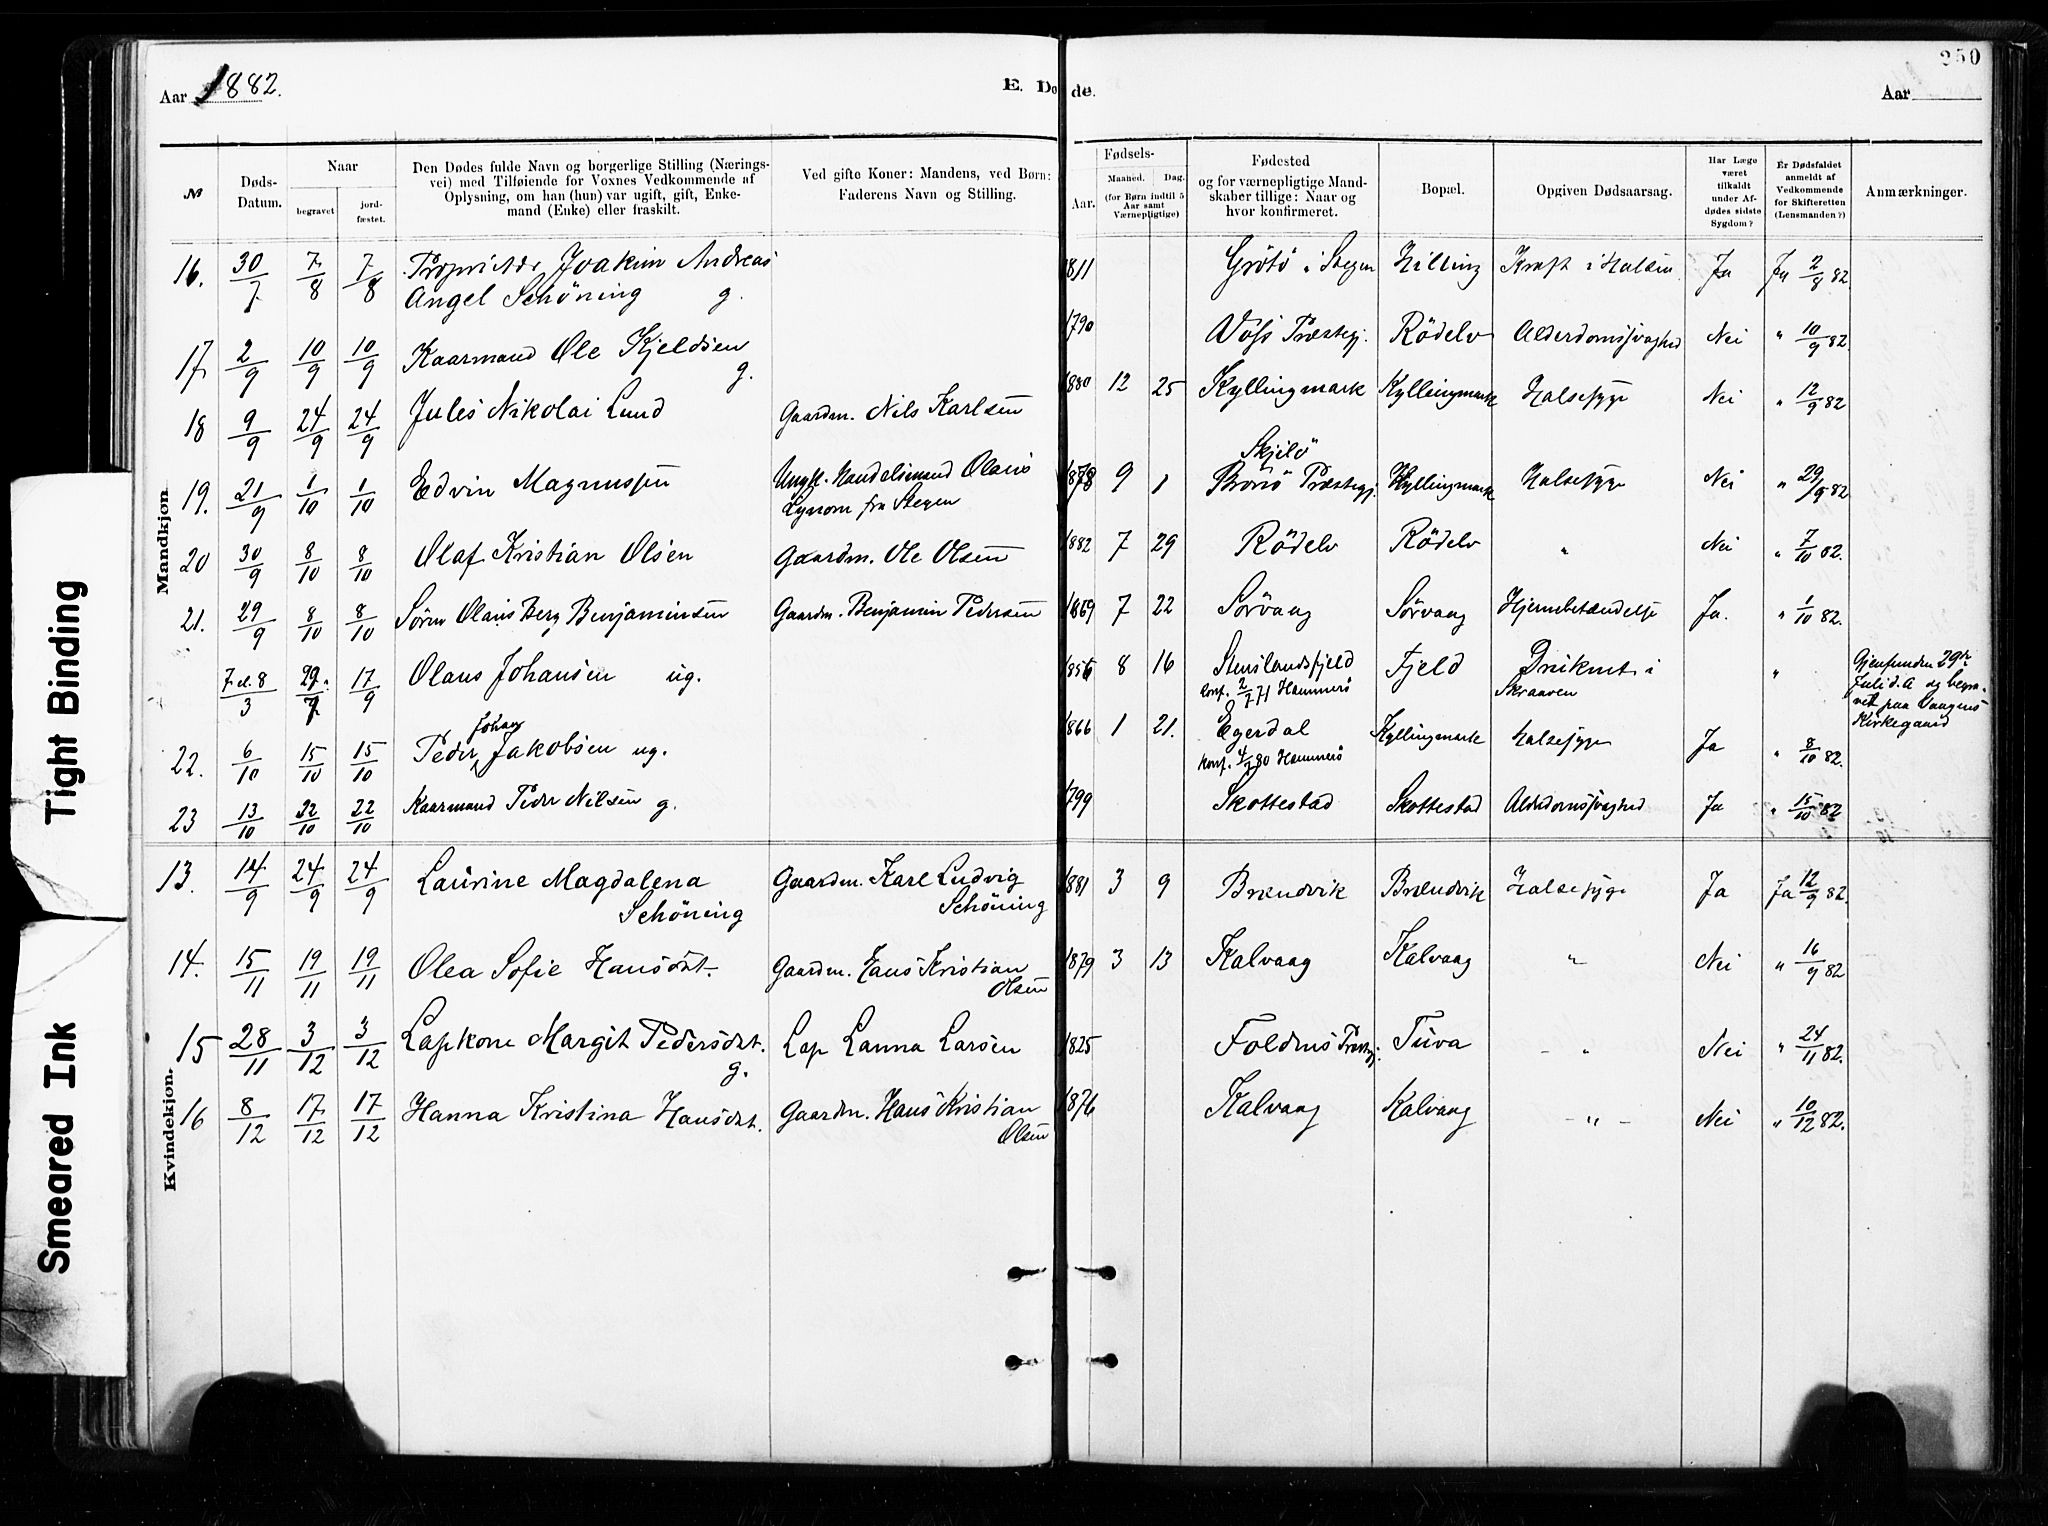 250
Aar 1882.
E. Døde.
Aar
№
Døds-Datum.
Naar
begravet
jord-fæstet.
Den Dødes fulde Navn og borgerlige Stilling (Nærings-
vei) med Tilføiende for Voxnes Vedkommende af
Oplysning, om han (hun) var ugift, gift, Enke-
mand (Enke) eller fraskilt.
Ved gifte Koner: Mandens, ved Børn:
Faderens Navn og Stilling.
Fødsels-
Aar.
Maaned.
Dag.
(for Børn indtil 5
Aar samt
Værnepligtige)
Fødested
og for værnepligtige Mand-
skaber tillige: Naar og
hvor konfirmeret.
Bopæl.
Opgiven Dødsaarsag.
Har Læge
været
tilkaldt
under Af-
dødes sidste
Sygdom?
Er Dødsfaldet
anmeldt af
Vedkommende
for Skifteretten
(Lensmanden?)
Anmærkninger.
Mandkjøn
16. 30/7 7/8 7/8 Proprietær Joakim Andreas 1811 Grötö i Stegen Hilling Kræft i Halsen Ja Ja 2/8 82.
Angel Schöning g.
17. 2/9 10/9 10/9 Kaarmand Ole Kjeldsen g. 1790 Vöss Præstegj. Rödelv Alderdomssvaghed Nei " 10/9 82.
18 9/9 24/9 24/9 Jules Nikolai Lund Gaardm. Nils Karlsen 1880 12 25 Kyllingmark Kyllingmark Halsesyge Nei " 12/9 82
19. 21/9 1/10 1/10 Edvin Magnussen Ungk. Handelsmand Olaus 1878 9 1 Skjelö
fra Stegen Præstegj. Kyllingmark Halsesyge Nei " 29/9 82
20 30/9 8/10 8/10 Olaf Kristian Olsen Gaardm. Ole Olsen 1882 7 29 Rödelv Rödelv " Nei " 7/10 82.
21. 29/9 8/10 8/10 Sören Olaus Berg Benjaminsen Gaardm. Benjamin Pedersen 1869 7 22 Sörvaag Sörvaag Hjernebetændelse Ja. " 1/10 82.
7 el. 8/3 29/7 17/9 Olaus Johansen ug. 1856 8 16 Stenslandsfjeld Fjeld Druknet i "
conf. 2/7 71 Hammerö Skraaven
Gjenfunden 29de
Juli d. A og begra-
vet paa Vaagens
Kirkegaard
22. 6/10 15/10 15/10 Peder Johan Jakobsen ug. 1866 1 21. Egerdal Kyllingmark Halsesyge Ja " 8/10 82.
konf. 4/7 80 Hammerö
23 13/10 22/10 22/10 Kaarmand Peder Nilsen g. 1799 Skottestad Skottestad Alderdomssvaghed Ja " 15/10 82
Kvindekjøn.
13. 14/9 24/9 24/9 Laurine Magdalena Gaardm. Karl Ludvig 1881 3 9 Brændvik Brændvik Halsesyge Ja Ja 12/9 82.
Schöning Schöning
14. 15/11 19/11 19/11 Olea Sofie Hansdat. Gaardm. Hans Kristian 1879 3 13 Kalvaag Kalvaag " Nei " 16/9 82
Olsen
15 28/11 3/12 3/12 Lapkone Margit Pedersdat. Lap Lanna Larsen 1825 Foldens Præstegj. Tuva - " Nei " 24/11 82.
g.
16 8/12 17/12 17/12 Hanna Kristina Hansdat. Gaardm. Hans Kristian 1876 Kalvaag Kalvaag - " - Nei " 10/12 82.
Olsen
Tight Binding
Smeared Ink